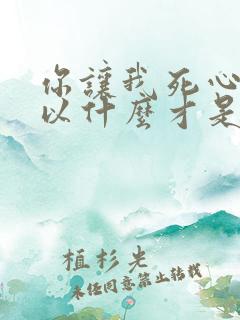 你讓我死心
以什麼才是
植杉先
未经同意禁止转载